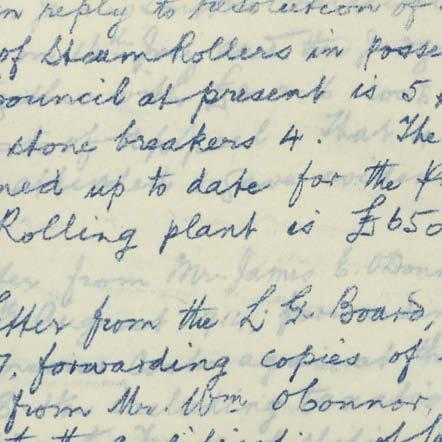 in reply to resolution of
of Steam Rollers in posse
council at present is 5
stone breakers 4. The
ned up to date for the
Rolling plant is £650
tter from the L. G. Board,
7, forwarding copies of
from Mr. Wm O'Connor,